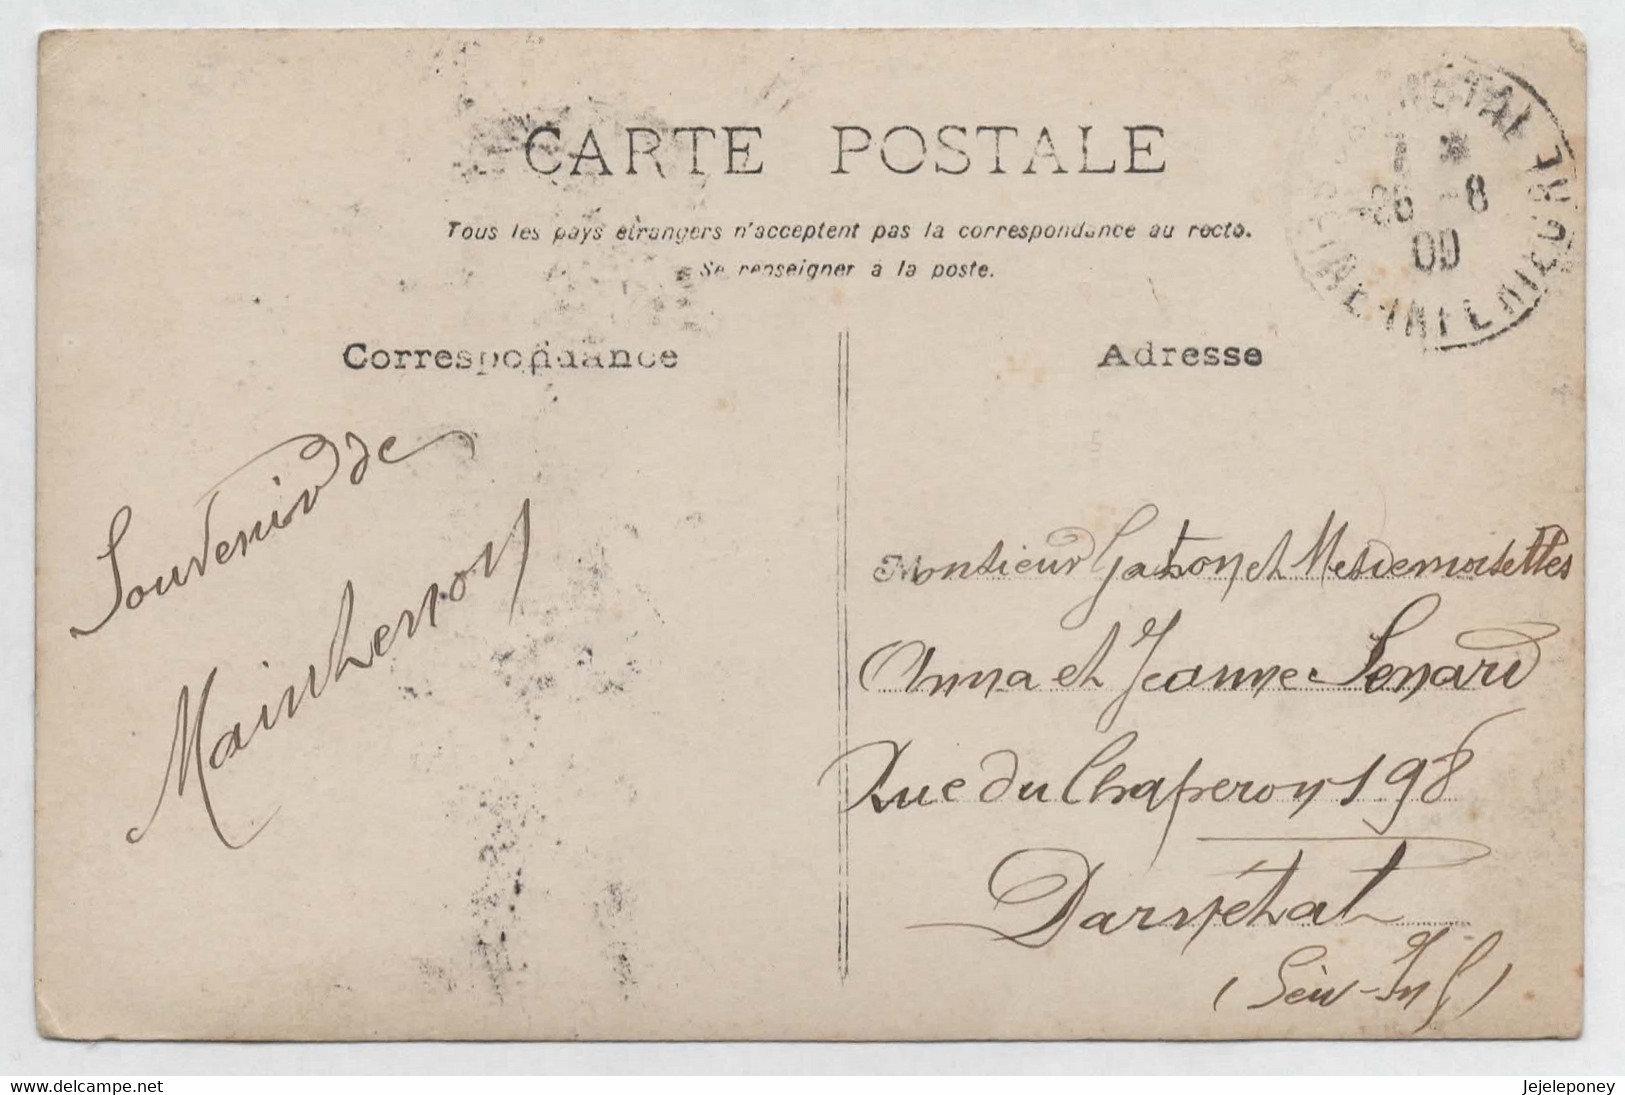 CARTE POSTALE
Tous les pays étrangers n'acceptent pas la correspondance au recto.
Se renseigner à la poste.
Correspondance
Adresse
NETAL
SEINE INFERIEURE
-8
Souvenir de
Maintenon
Monsieur Gaston et Mesdemoiselles
Anna et Jeanne Senard
Rue du Chaperon 198
Darnétal
(Sèin-Inf)
www.delcampe.net
Jejeleponey